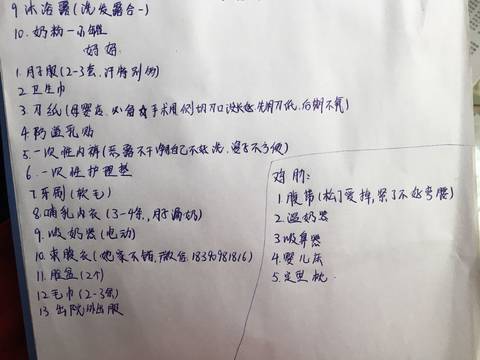 9 沐浴露(洗发露合一)
10. 奶粉一小罐
妈妈.
1. 月子服(2-3套,汗特别多)
2. 卫生巾
3. 刀纸(母婴店,必备 手术侧切刀口没长好,先用刀纸,后期不气)
4. 防溢乳贴
5. 一次性内裤(恶露不干净自己不好洗,婆婆不方便)
6. 一次性护理垫
7. 牙刷(软毛)
8. 哺乳内衣(3-4条,月子漏奶)
9. 吸奶器(电动)
10. 束腹衣(她家不错,微信18390981816)
11. 脸盆(2个)
12. 毛巾(2-3条)
13. 出院外出服
鸡肋:
1. 腹带(松了爱掉,紧了不好弯腰)
2. 温奶器
3. 吸鼻器
4. 婴儿床
5. 定型枕